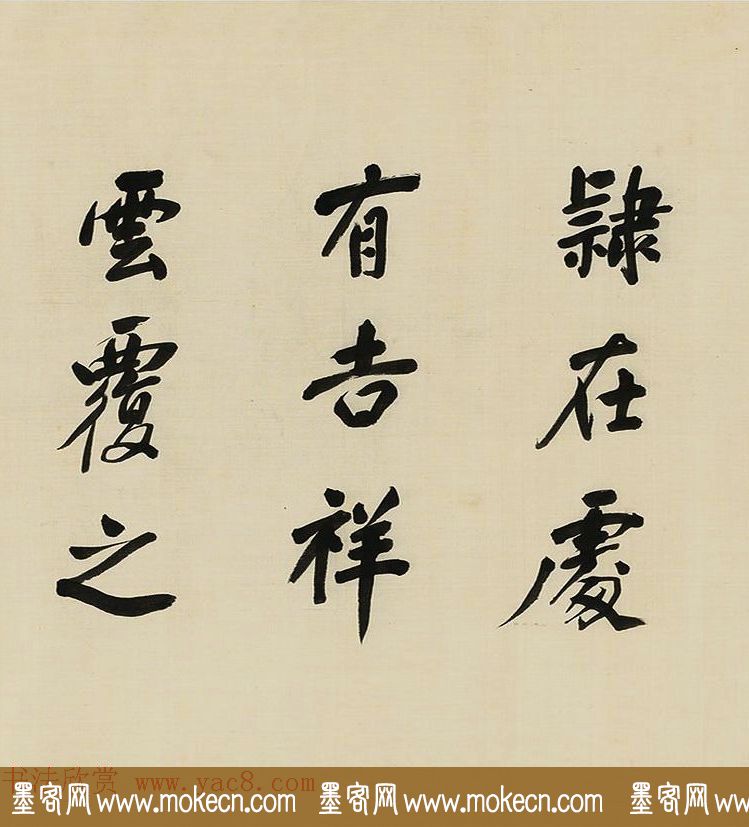 隸在處
有吉祥
雲覆之
书法欣赏 www.yac8.com
墨客网www.mokecn.com 墨客网www.mokecn.com 墨客网www